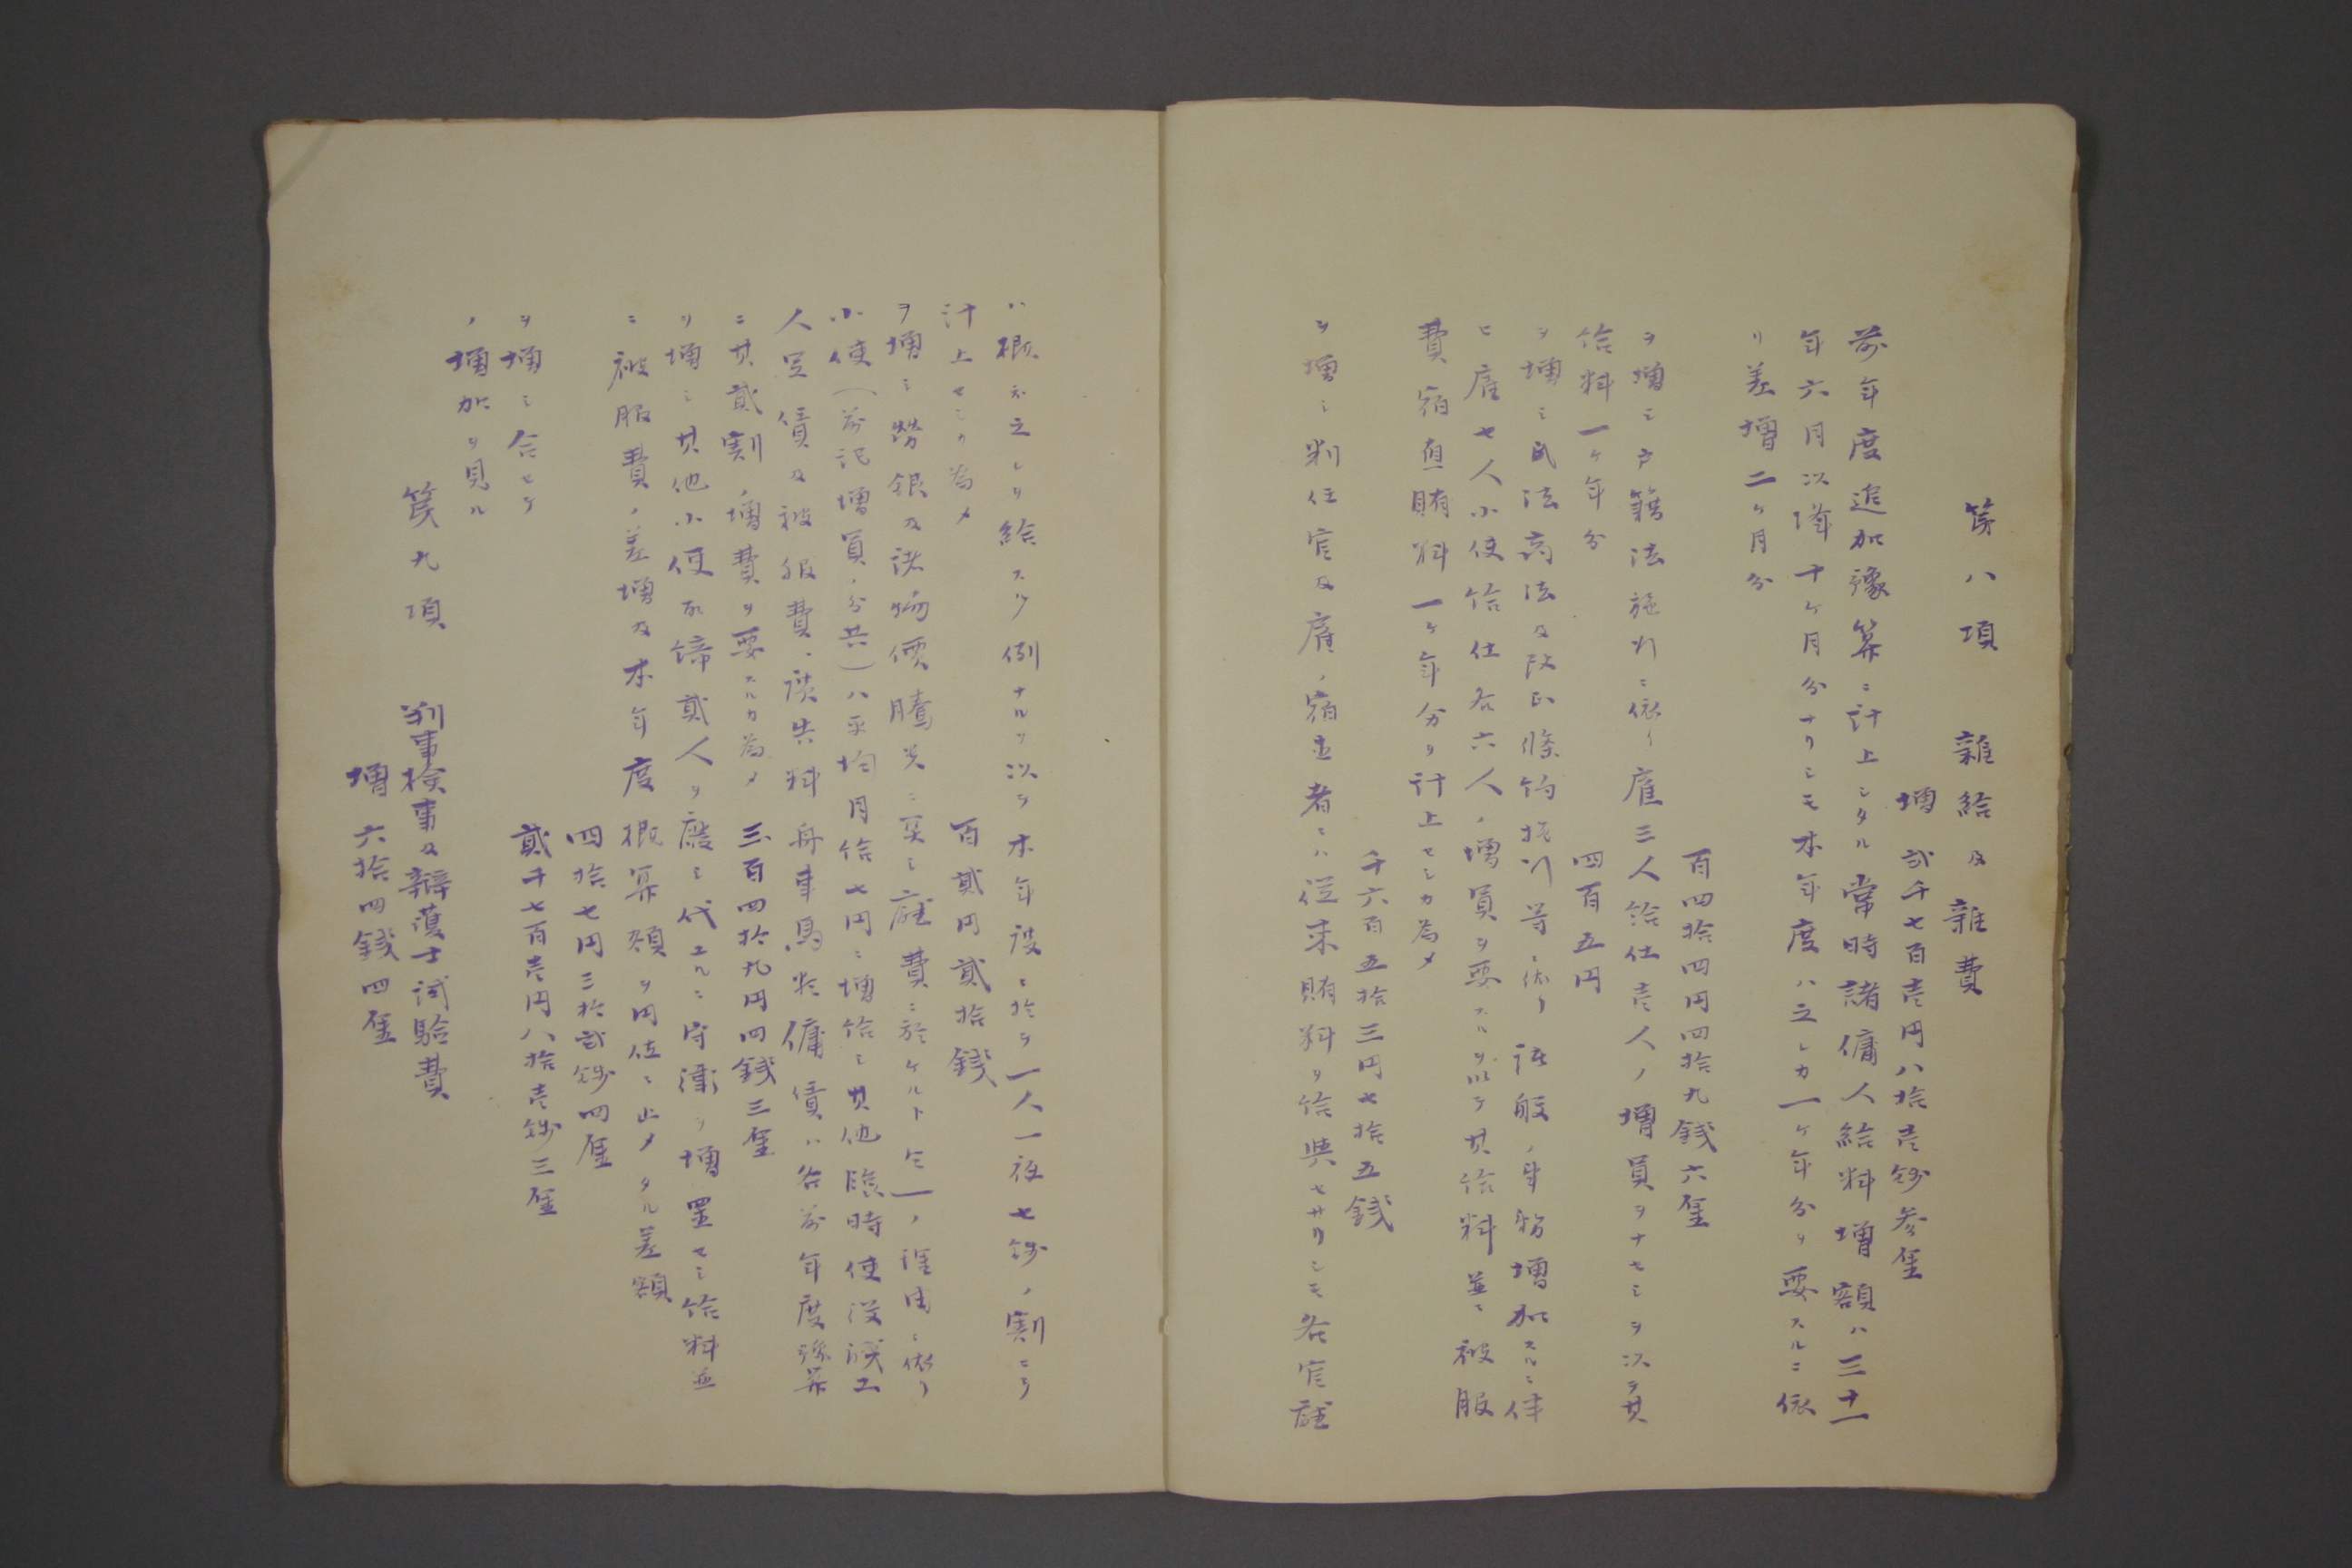 第八項　雜給及雜費
増　弐千七百壱円八拾壱銭参厘
前年度追加豫算ニ計上シタル常時諸傭人給料増額ハ三十一
年六月以降十ヶ月分ナリシモ本年度ハ之レカ一ヶ年分ヲ要スルニ依
リ差増二ヶ月分
百四拾四円四拾九銭六厘
ヲ増シ戸籍法施行ニ依リ雇三人給仕壱人ノ増員ヲナセシヲ以テ其
給料一ヶ年分
四百五円
ヲ増シ民法商法及改正條約施行等ニ依リ諸般ノ事務増加スルニ伴
ヒ雇七人小使給仕各六人ノ増員ヲ要スルヲ以テ其給料並ニ被服
費宿直賄料一ヶ年分ヲ計上セシカ為メ
千六百五拾三円七拾五銭
ヲ増シ判任官及雇ノ宿直者ニハ従来賄料ヲ給與セサリシモ各官廳
ハ概ネ之レヲ給スル例ナルヲ以テ本年設ニ於テ一人一夜七銭ノ割ニテ
計上セシカ為メ
百貳円貳拾銭
ヲ増シ勞銀及諸物價騰貴ニ実シ廳費ニ於ケルト仝一ノ理由ニ依リ
小使（前記増員ノ分共）ハ平均月給七円ニ増給シ其他臨時使役職工
人足賃及被服費、廣告料舟車馬並傭賃ハ各前年度豫算
ニ其貳割ノ増費ヲ要スルカ為メ
三百四拾九円四銭三厘
ヲ増シ其他小使取締貳人ヲ廢シ代ユルニ守衛ヲ増置セシ給料並
ニ被服費ノ差増及本年度概算額ヲ円位ニ止メタル差額
四拾七円三拾弐銭四厘
ヲ増シ合セテ
貳千七百壱円八拾壱銭三厘
ノ増加ヲ見ル
第九項　判事検事及辯護士試驗費
増　六拾四銭四厘